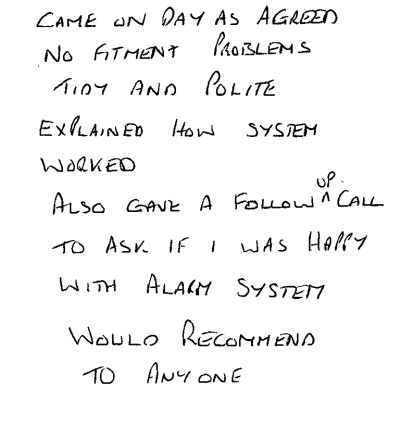 CAME ON DAY AS AGREED
NO FITMENT PROBLEMS
TIDY AND POLITE
EXPLAINED HOW SYSTEM
WORKED
ALSO GAVE A FOLLOW UP CALL
TO ASK IF I WAS HAPPY
WITH ALARM SYSTEM
WOULD RECOMMEND
TO ANYONE